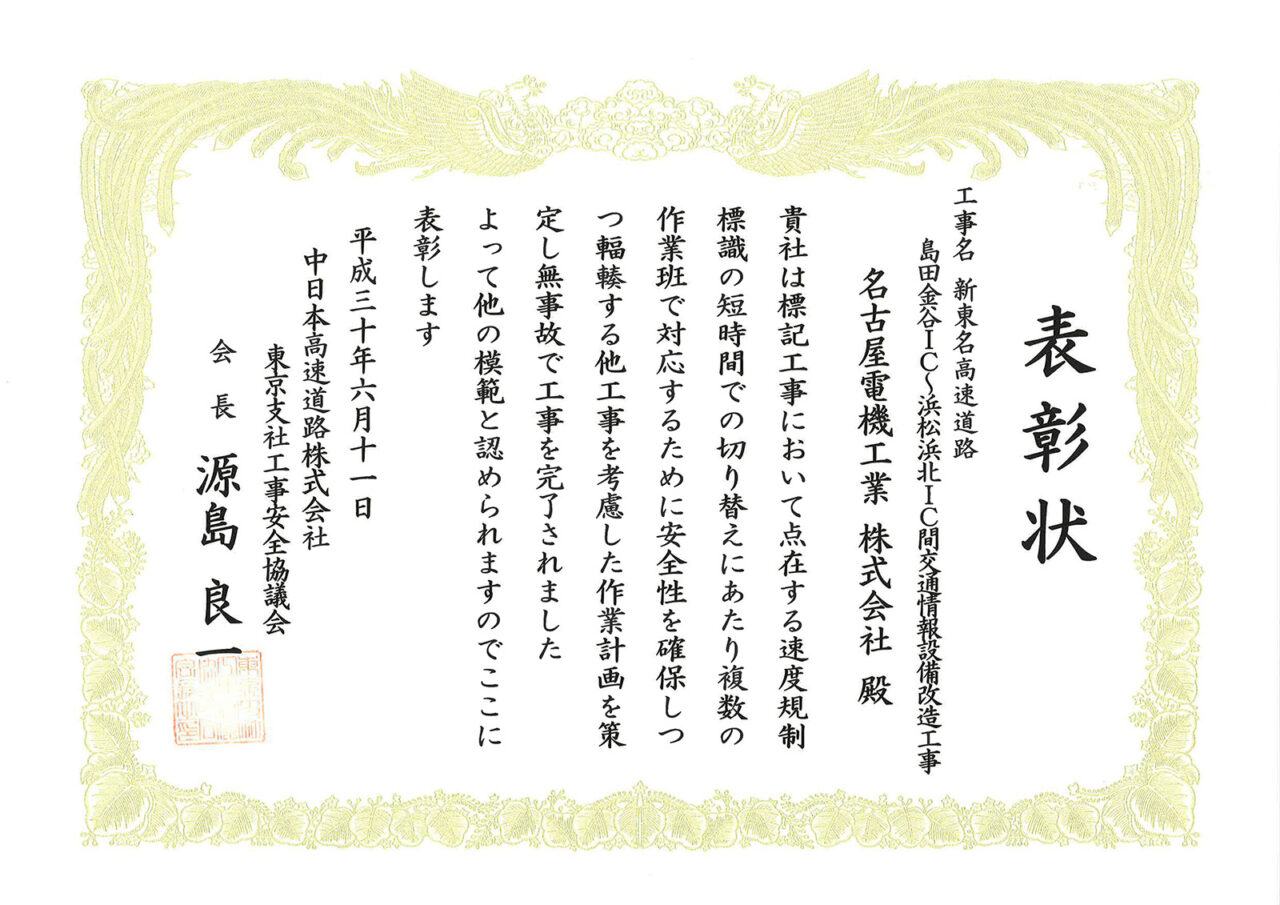 表彰状
工事名 新東名高速道路
島田金谷IC～浜松浜北IC間交通情報設備改造工事
名古屋電機工業 株式会社 殿
貴社は標記工事において点在する速度規制
標識の短時間での切り替えにあたり複数の
作業班で対応するために安全性を確保しつ
つ輻輳する他工事を考慮した作業計画を策
定し無事故で工事を完了されました
よって他の模範と認められますのでここに
表彰します
平成三十年六月十一日
中日本高速道路株式会社
東京支社工事安全協議会
会長 源島良一